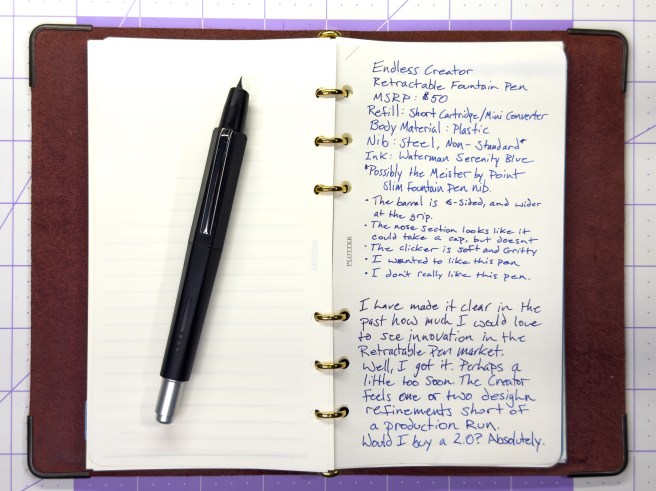 Endless Creator
Retractable Fountain Pen
MSRP: $50
Refill: Short Cartridge/Mini Converter
Body Material: Plastic
Nib: Steel, Non-Standard*
Ink: Waterman Serenity Blue
*Possibly the Meister by Point
Slim Fountain pen nib.
• The barrel is 6-sided, and wider
at the grip.
• The nose section looks like it
could take a cap, but doesnt
• The clicker is soft and Gritty
• I wanted to like this pen
• I don't really like this pen.
PLOTTER
I have made it clear in the
past how much I would love
to see innovation in the
Retractable Pen market.
Well, I got it. Perhaps a
little too soon The Creator
feels one or two design
refinements short of
a production Run.
Would I buy a 2.0? Absolutely.